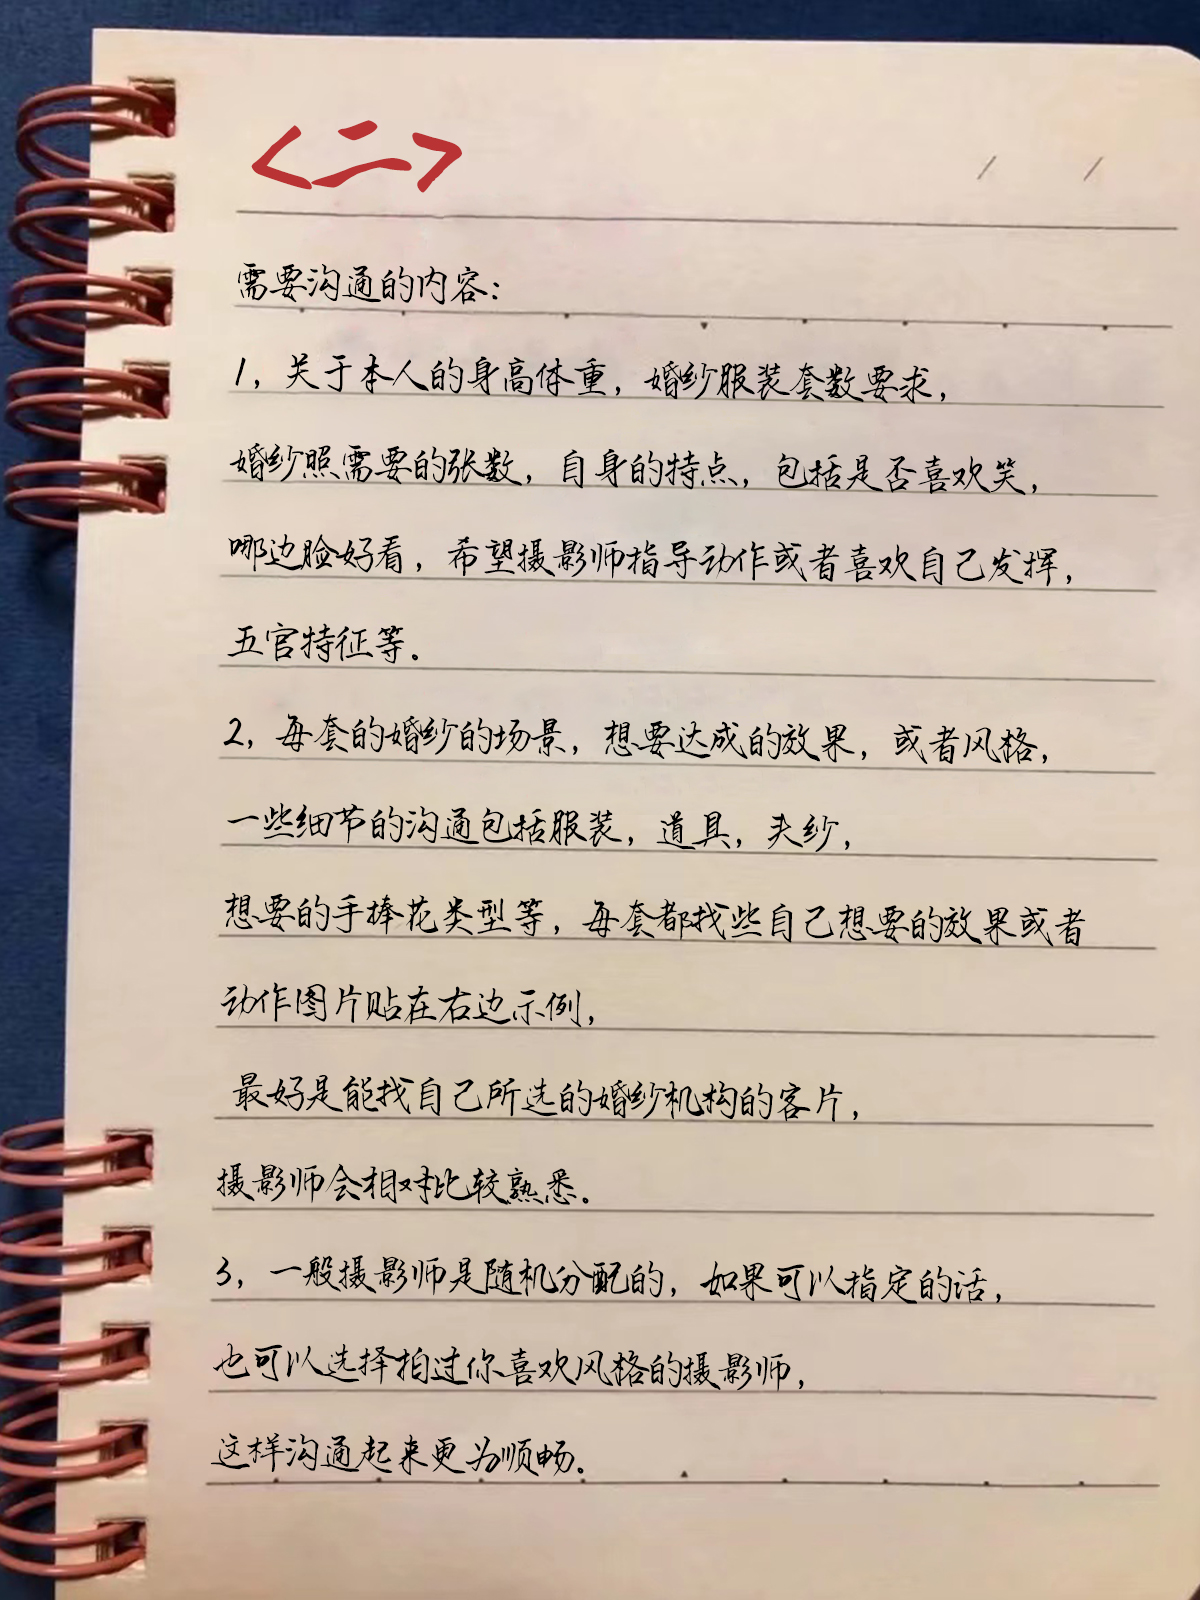 <二>
需要沟通的内容：
1，关于本人的身高体重，婚纱服装套数要求，
婚纱照需要的张数，自身的特点，包括是否喜欢笑，
哪边脸好看，希望摄影师指导动作或者喜欢自己发挥，
五官特征等。
2，每套的婚纱的场景，想要达成的效果，或者风格，
一些细节的沟通包括服装，道具，头纱，
想要的手捧花类型等，每套都找些自己想要的效果或者
动作图片贴在右边示例，
最好是能找自己所选的婚纱机构的客片，
摄影师会相对比较熟悉。
3，一般摄影师是随机分配的，如果可以指定的话，
也可以选择拍过你喜欢风格的摄影师，
这样沟通起来更为顺畅。